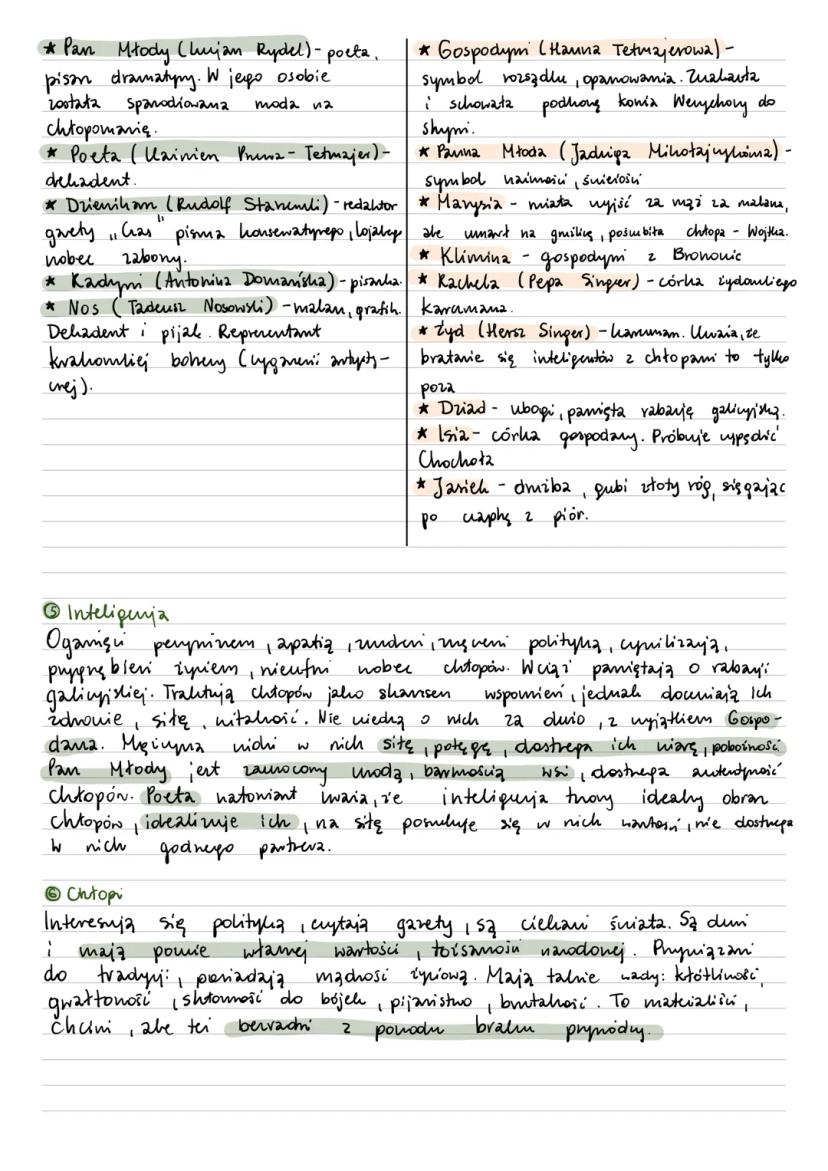 ★ Pan Młody (Lucjan Rydel) - poeta,
pisarz dramatyczny. W jego osobie
została sparodiowana moda na
chłopomanię.
★ Poeta (Kazimierz Przerwa-Tetmajer) -
dekadent.
★ Dziennikarz (Rudolf Starzewski) - redaktor
gazety „Czas" pisma konserwatywnego, lojalnego
wobec zaborcy.
★ Radczyni (Antonina Domańska) - pisarka.
★ Nos (Tadeusz Noskowski) - malarz, grafik.
Dekadent i pijak. Reprezentant
krakowskiej bohemy (cyganerii artysty-
cznej).
★ Gospodyni (Hanna Tetmajerowa) -
symbol rozsądku, opanowania. Znalazła
i schowała podkowę konia Wernyhory do
skrzyni.
★ Panna Młoda (Jadwiga Mikołajczykówna) -
symbol naiwności, świeżości
★ Marysia - miała wyjść za mąż za malarza,
ale umarł na gruźlicę, poślubiła chłopa - Wojtka.
★ Klimina - gospodyni z Bronowic
★ Rachela (Pepa Singer) - córka żydowskiego
karczmarza.
★ Żyd (Hersz Singer) - karczmarz. Uważa, że
bratanie się inteligentów z chłopami to tylko
poza
★ Dziad - ubogi, pamięta rabację galicyjską.
★ Isia - córka gospodarzy. Próbuje wypędzić
Chochoła
★ Jasiek - drużba, gubi złoty róg, sięgając
po czapkę z piór.
⑤ Inteligencja
Ogarnięci pesymizmem, apatią, znudzeni, zmęczeni polityką, cywilizacją,
przygnębieni życiem, nieufni wobec chłopów. Wciąż pamiętają o rabacji
galicyjskiej. Traktują chłopów jako skansen wspomnień, jednak doceniają ich
zdrowie, siłę, witalność. Nie wiedzą o nich za dużo, z wyjątkiem Gospo-
darza. Mężczyzna widzi w nich siłę, potęgę, dostrzega ich wiarę, pobożność
Pan Młody jest zauroczony urodą, barwnością wsi, dostrzega autentyczność
chłopów. Poeta natomiast uważa, że inteligencja tworzy idealny obraz
chłopów, idealizuje ich, na siłę poszukuje się w nich wartości, nie dostrzega
w nich godnego partnera.
⑥ Chłopi
Interesują się polityką, czytają gazety, są ciekawi świata. Są dumni
i mają poczucie własnej wartości, tożsamości narodowej. Przywiązani
do tradycji, posiadają mądrość życiową. Mają także wady: kłótliwość,
gwałtowność, skłonność do bójek, pijaństwo, brutalność. To materialiści,
chciwi, ale też bezradni z powodu braku przywódcy.